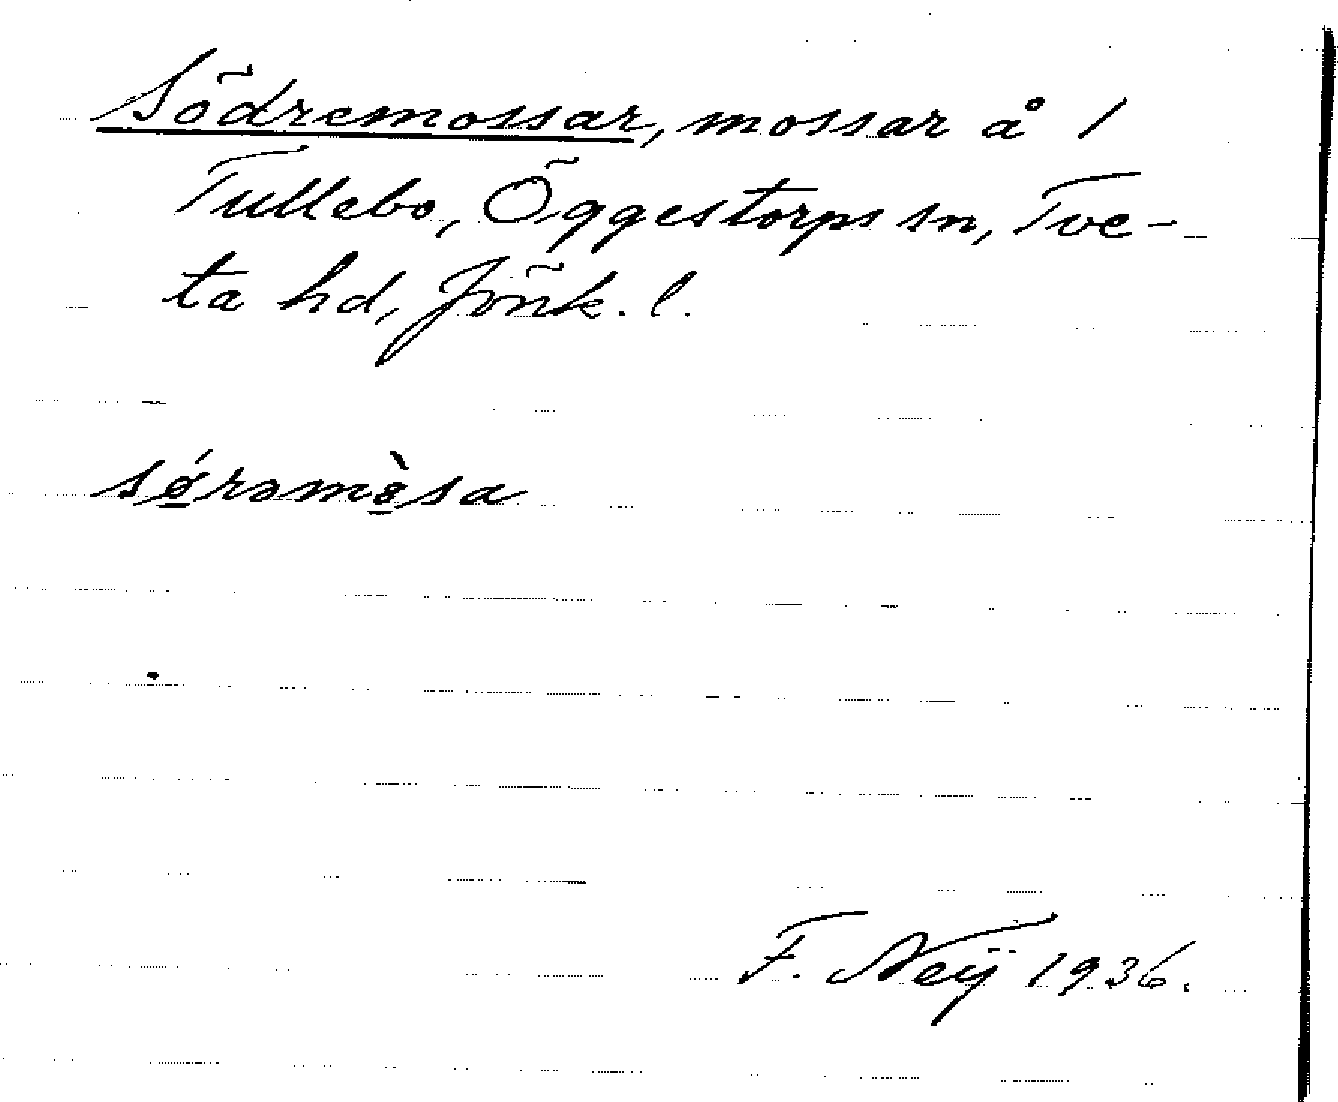 Södremossar, mossar å 1
Tullebo, Öggestorps sn, Tve-
ta hd, Jönk. l.
sǿrəmòsa
F. Neij 1936.